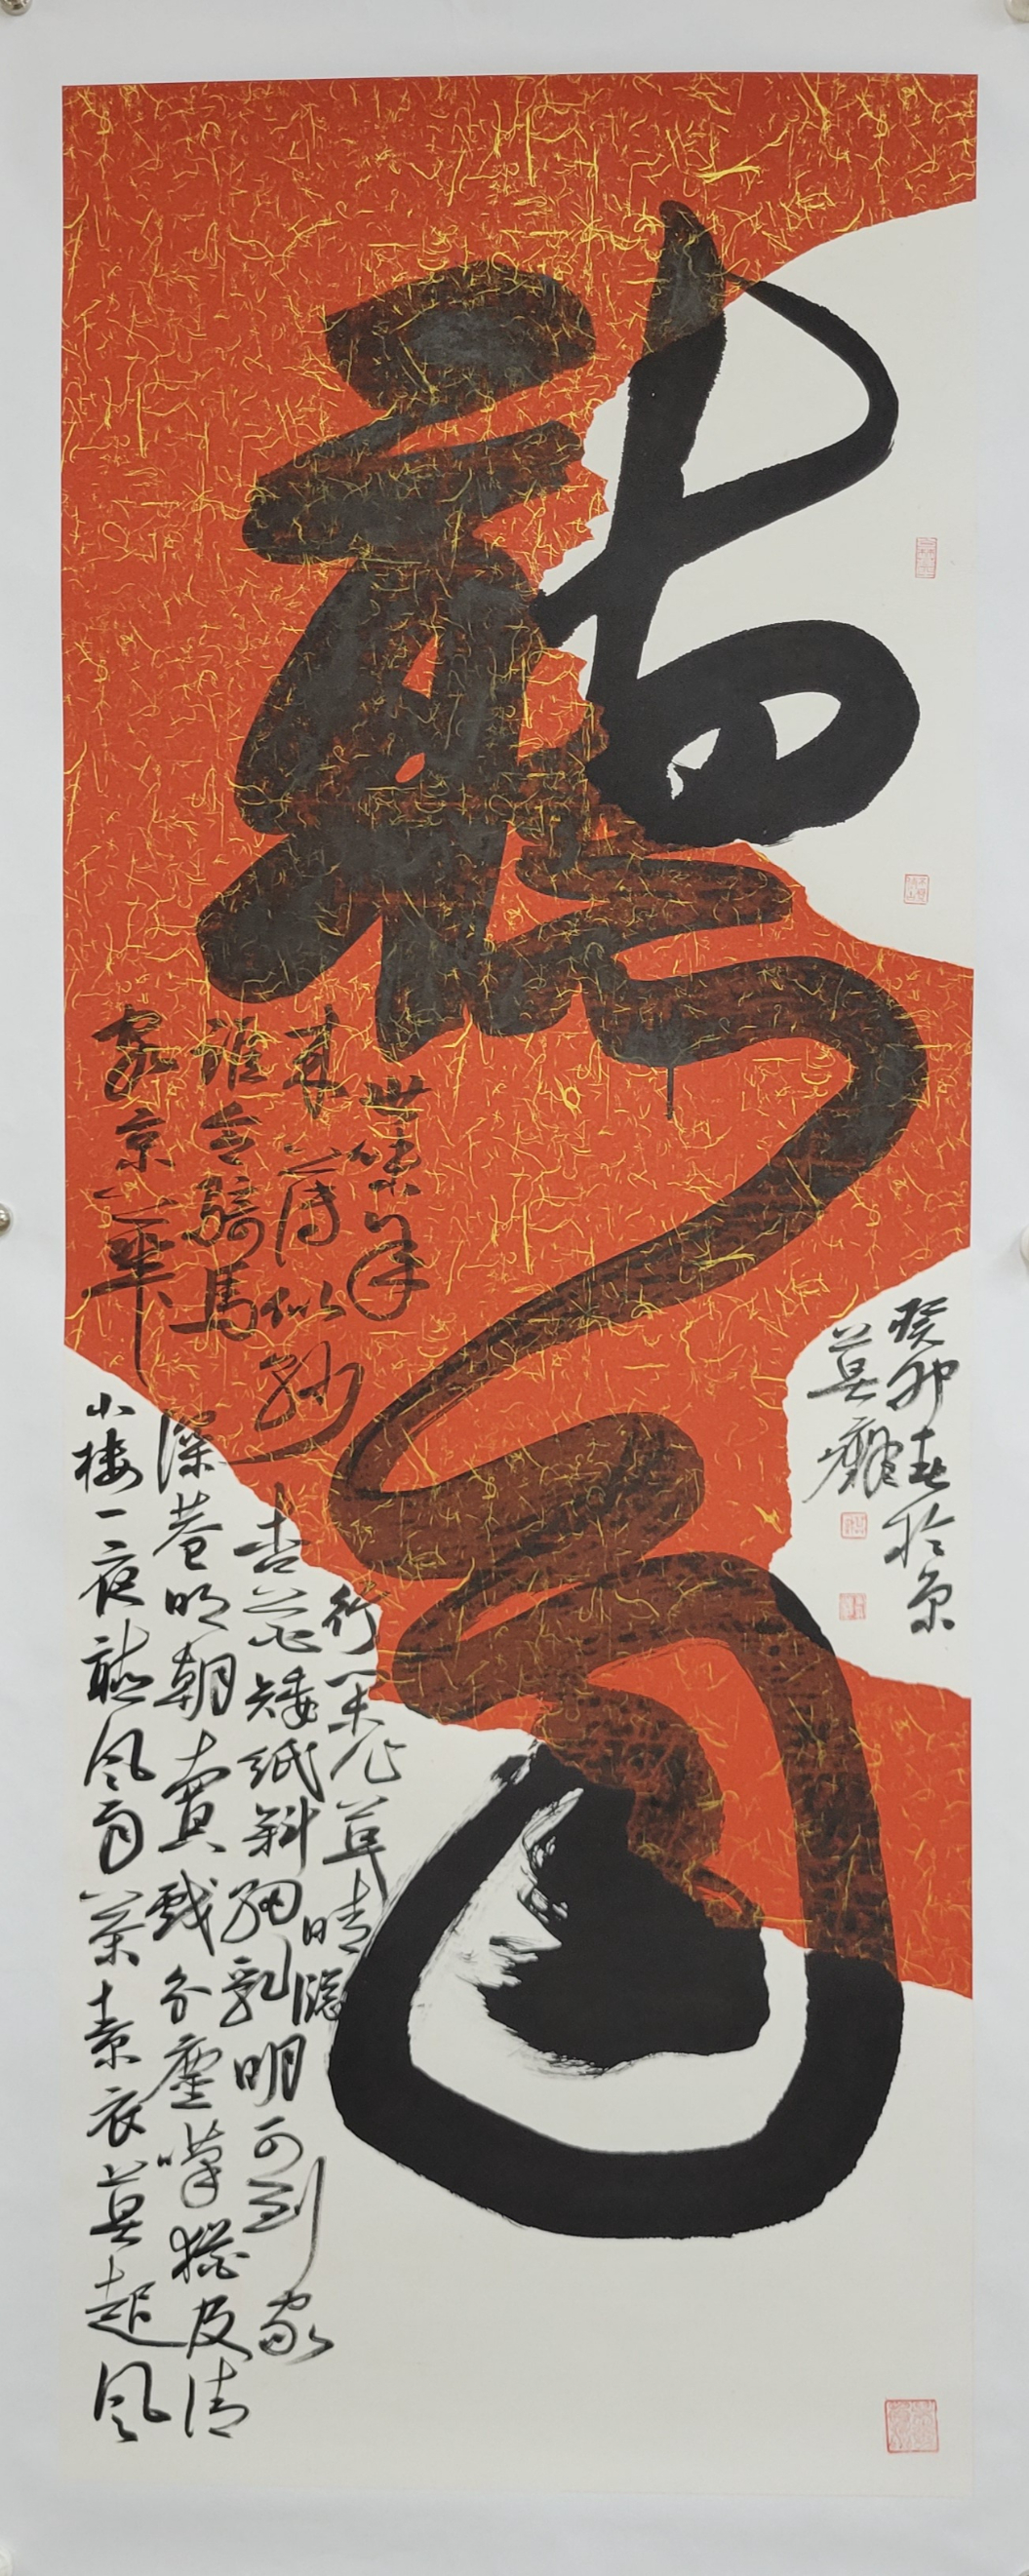 聽雨
世味年
来薄似紗
誰令騎馬
客京華
小樓一夜聽風雨
深巷明朝賣
杏花矮紙斜
行閑作草晴窗
細乳
戲分
茶素衣莫起風
塵嘆猶及清
明可到家
癸卯春於京
莫